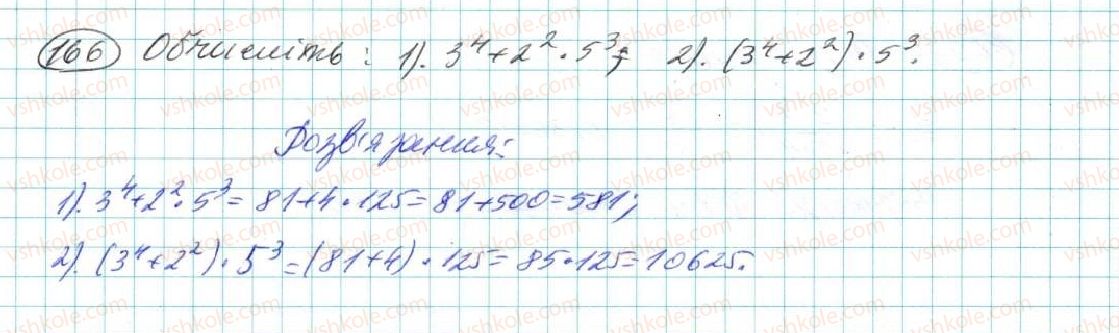 166 Обчисліть: 1). 3⁴+2²·5³; 2). (3⁴+2²)·5³.
Розв'язання:
1). 3⁴+2²·5³=81+4·125=81+500=581;
2). (3⁴+2²)·5³=(81+4)·125=85·125=10625.